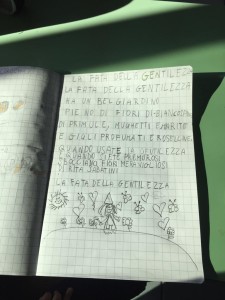 LA FATA DELLA GENTILEZZA
LA FATA DELLA GENTILEZZA
HA UN BEL GIARDINO
PIENO DI FIORI DI
DI PRIMULE, MUGHETTI E
E GIGLI PROFUMATI E ROSELLINE.
QUANDO USATE LA
QUANDO SIETE PREMUROSI
SBOCCIANO FIORI MERAVIGLIOSI
DI RITA SABATINI
LA FATA DELLA GENTILEZZA